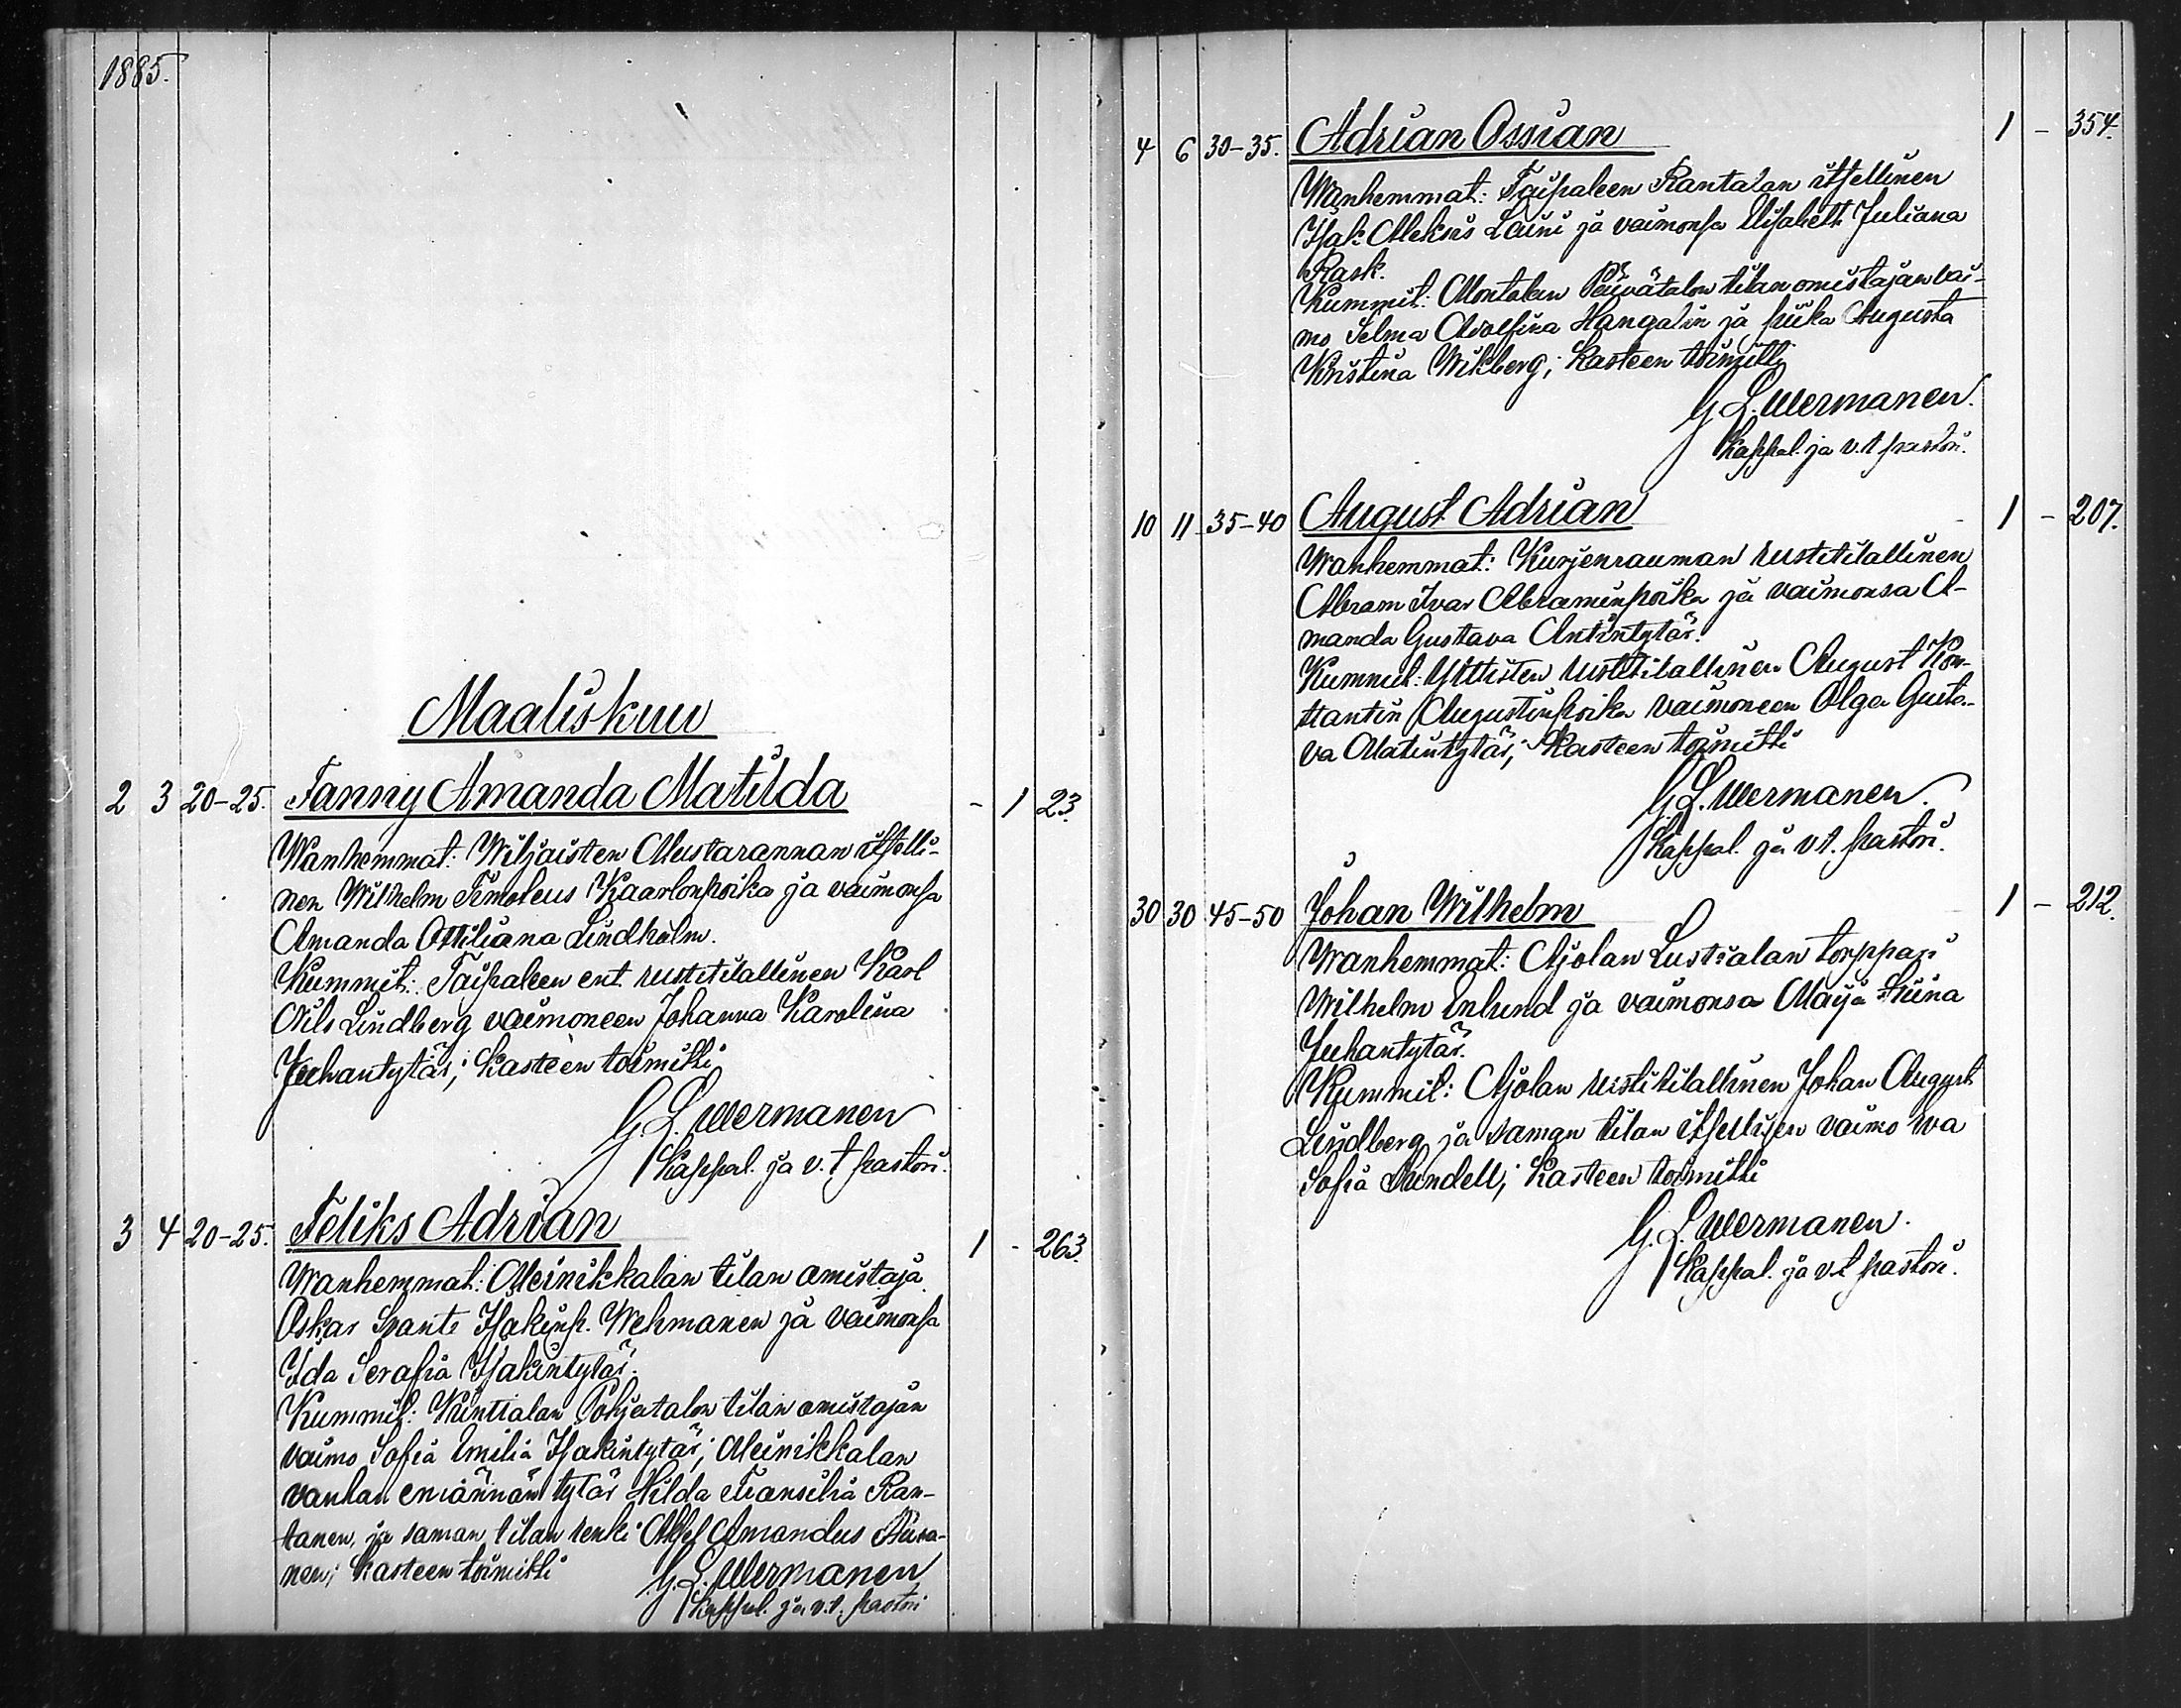 1885.
Maaliskuu
2 3 20-25. Fanny Amanda Matilda - 1 23.
Wanhemmat: Wiljaisten Mustarannan itselli-
nen Wilhelm Timoteus Kaarlonpoika ja vaimonsa
Amanda Ottiliana Lindholm.
Kummit: Taipaleen ent. rustitilallinen Karl
Nils Lindberg vaimoneen Johanna Karolina
Juhantytär; Kasteen toimitti
G. L. Mermanen
Kappal. ja v.t. pastori.
3 4 20-25. Feliks Adrian 1 - 263.
Wanhemmat: Meinikkalan tilan omistaja
Oskar Svante Isakinp. Wehmanen ja vaimonsa
Ida Serafia Isakintytär.
Kummit: Kinttalan Pohjatalon tilan omistajan
vaimo Sofia Emilia Isakintytär; Meinikkalan
vanhan emännän tytär Hilda Ran-
tanen, ja saman tilan renki Aksel Amandus
nen; Kasteen toimitti
G. L. Mermanen
Kappal. ja v.t. pastori
4 6 30-35. Adrian Ossian 1 - 354.
Wanhemmat: Taipaleen Rantalan itsellinen
Isak Aleksis Laini ja vaimonsa Elisabeth Juliana
Rask.
Kummit: Montolan Päivätalon tilan omistajan vai-
mo Selma Adolfina Hangelin ja piika Augusta
Kristina Wikberg; Kasteen toimitti
G. L. Mermanen.
Kappal. ja v.t. pastori.
10 11 35-40 August Adrian 1 - 207.
Wanhemmat: Kurjenrauman rustitilallinen
Abram Ivar Abraminpoika ja vaimonsa A-
manda Gustava Antintytär.
Kummit: Yttisten rustitilallinen August Kon-
stantin Augustinpoika vaimoneen Olga Gusta-
va Matintytär; Kasteen toimitti
G. L. Mermanen.
Kappal. ja v.t. pastori.
30 30 45-50 Johan Wilhelm 1 - 212.
Wanhemmat: Ajolan Lustialan torppari
Wilhelm Enlund ja vaimonsa Maija Stiina
Juhantytär.
Kummit: Ajolan rustitilallinen Johan August
Lindberg ja saman tilan itsellisen vaimo Eva
Sofia Sundell; Kasteen toimitti
G. L. Mermanen.
Kappal. ja v.t. pastori.